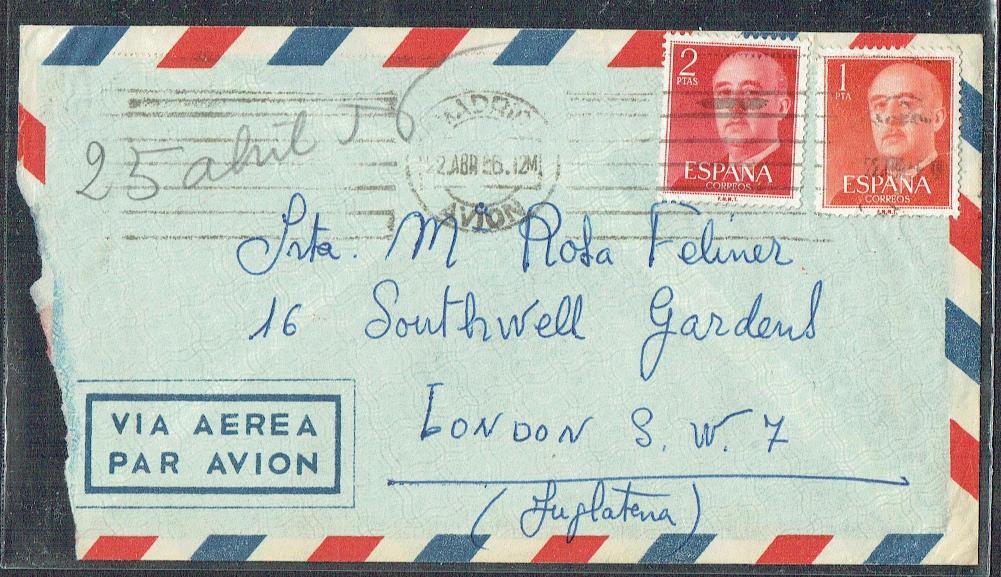 2
PTAS
ESPAÑA
CORREOS
F.N.M.T.
1
PTA
ESPAÑA
CORREOS
F.N.M.T.
25 abril 56
MADRID
22.ABR 56.12M
AVION
Srta. Mª Rosa Feliner
16 Southwell Gardens
LONDON S.W. 7
(Inglaterra)
VIA AEREA
PAR AVION